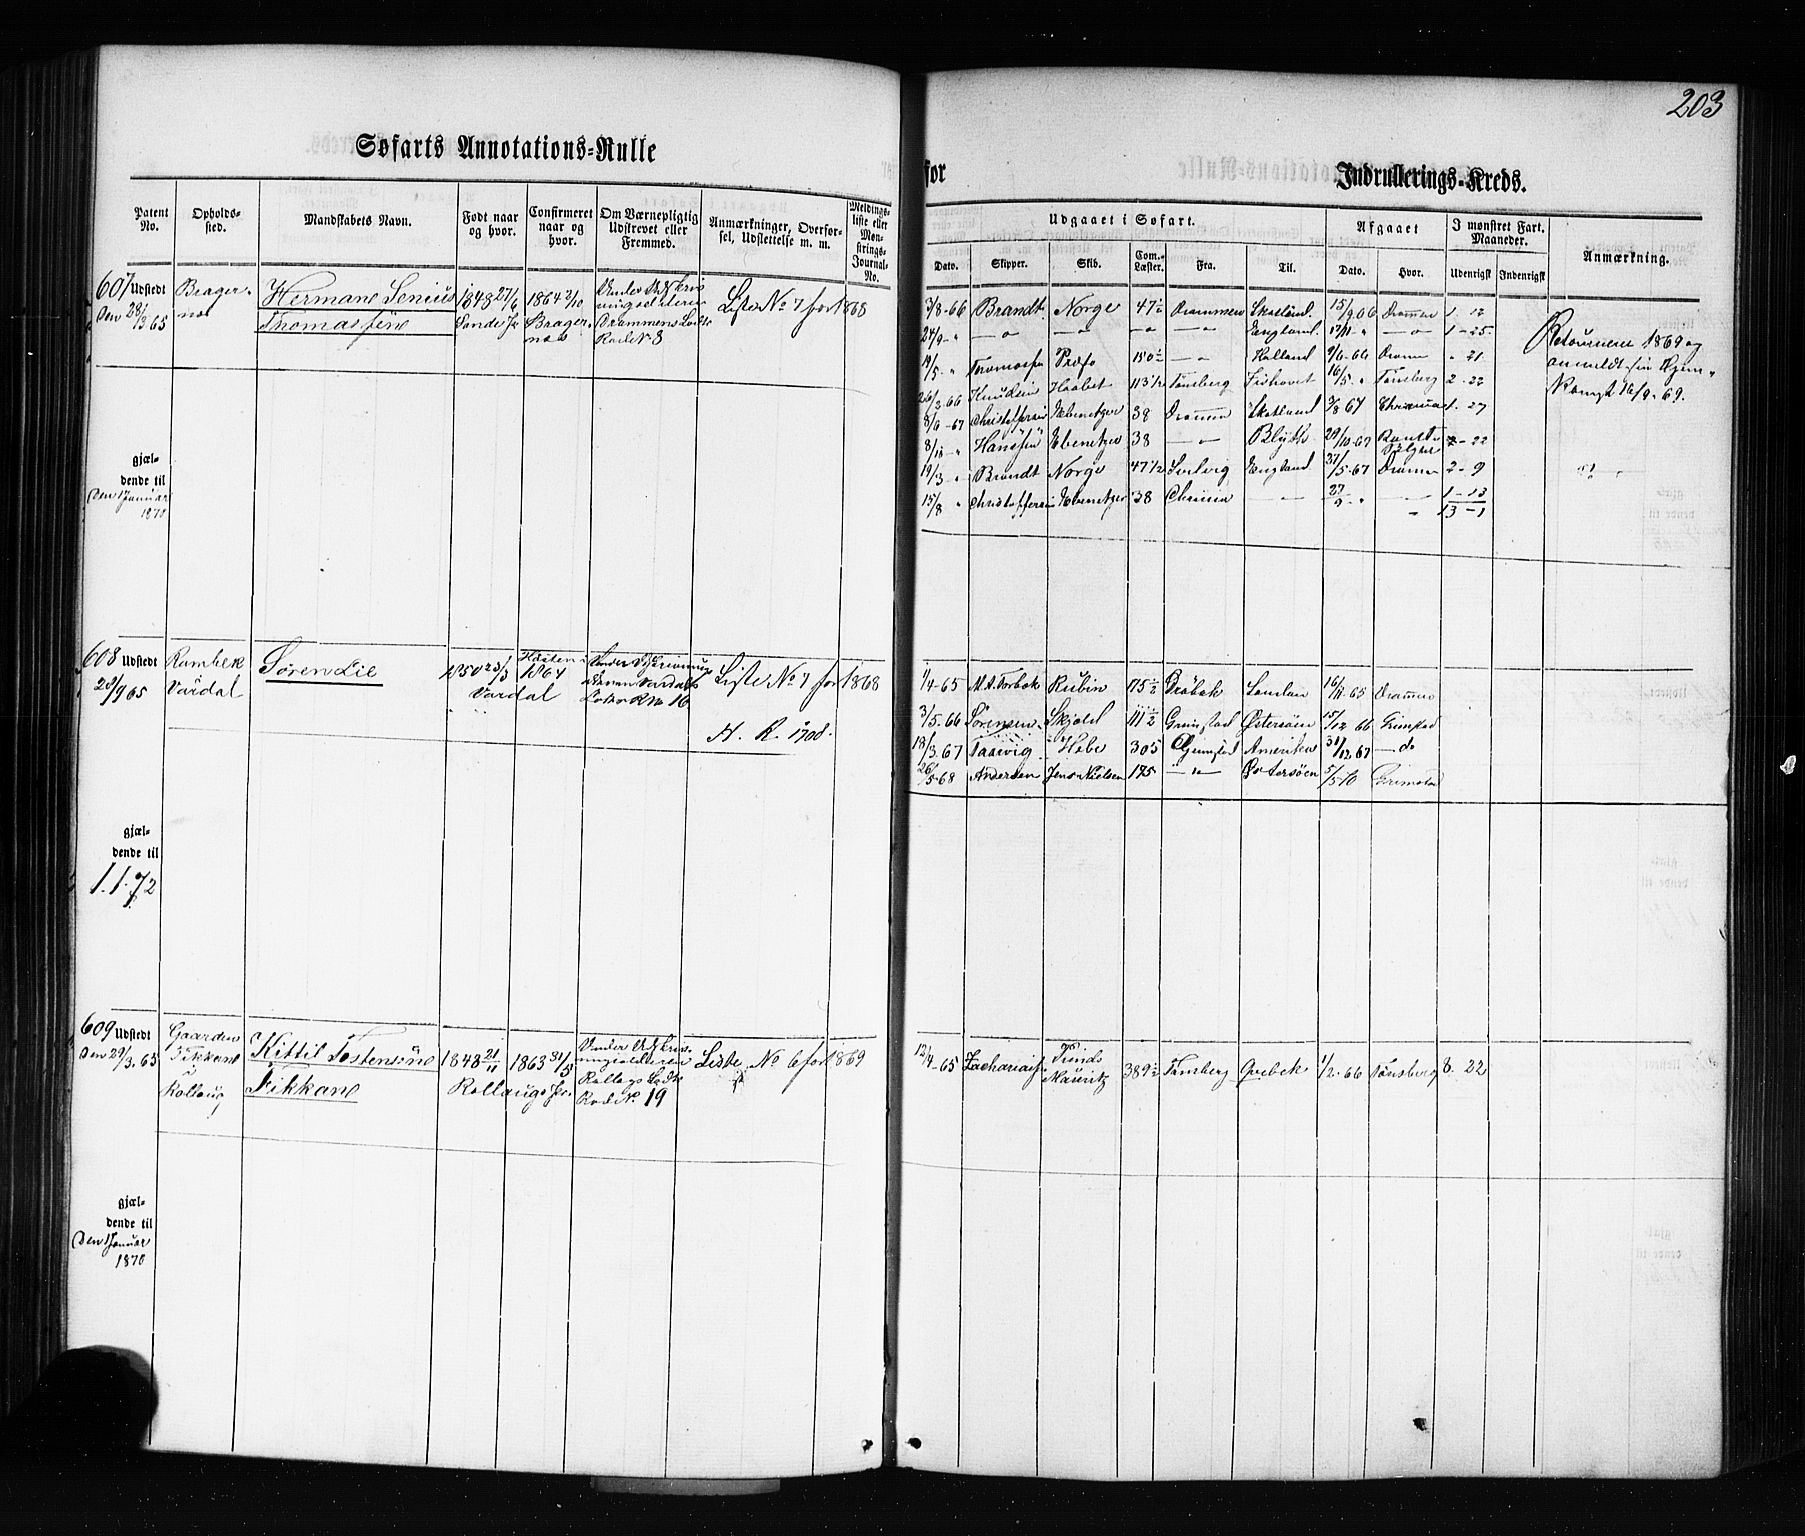 203
Søfarts Annotations-Rulle
for Indrullerings-Kreds.
Patent No.
Opholdssted.
Mandskabets Navn.
Født naar og hvor.
Confirmeret naar og hvor.
Om Værnepligtig Udskrevet eller Fremmed.
Anmærkninger, Overførsel, Udslettelse m. m.
Meldingsliste eller Mønstrings-Journal-No.
Udgaaet i Søfart.
Dato. Skipper. Skib. Com.-Læster. Fra. Til.
Afgaaet
Dato. Hvor.
I mønstret Fart. Maaneder.
Udenrigsk Indenrigsk
Anmærkning.
607 Udstedt den 28/3 65
Bragernæs
Hermann Senius
Thomassen
1848 27/6 Sande
1864 2/10 Bragernæs
Drammens
Rode N 8
Liste No 7 for 1868
gjældende til
den 1 Januar 1870
7/3-66 Brandt Norge 47½ Drammen Skotland 15/9 66 Dramen 1-12
24/9-" —"— —"— " —"— England 17/11-" —"— 1-25
14/5-" Profo 150½ —"— Holland 9/6-66 Dramn "21
26/3-66 Knudsen Haabet 113½ Tønsberg 16/5-" Tønsberg 2-22
8/6-67 Christoffersen Ebenetzer 38 Dramen Skotland 3/8 67 1-27
8/10-" Hansen Ebenetzer 38 —"— Blyth 29/10-67 2-22
19/3-" Brandt Norge 47½ Svelvig England 31/5-67 Dramen 2-9
15/8 " Christoffersen Ebenetzer 38 —— 27/9-" —— 1-13
" 13-1
Retournere 1869 og
anmeldt
16/9-69.
608 Udstedt 20/9 65
Rambek
Vardal
Søren Lie
1850 23/3
Vardal
Høsten 1864
Vardal
Liste No 7 for 1868
A. R. 1708.
gjældende til
1.1.72
1/4-65 M. A. Torbok Rubin 175½ Drøbak London 16/11-65 Dramen
3/5-66 Sørensen Skjold 111½ Grimstad Østersøen 15/12 66 Grimstad
18/3-67 Taarvig Hebe 305 Grimstad Amerika 31/12 67 —do
26/5-68 Andersen Jens Nielsen 175 —"— Østersøen 5/5-70 Grimstad
609 Udstedt den 29/3 65
Gaarden
Fikkane
i
Rollaug
Kittil Tostensøn
Fikkane
1848 21/11 1863 31/5
Rollaugs
Rollags
Rode N. 19
Liste No 6 for 1869
gjældende til
den 1 Januar 1870
12/4-65 Zachariasen Trinds Mauritz 389½ Tønsberg Quebek 1/2-66 Tønsberg 8. 22